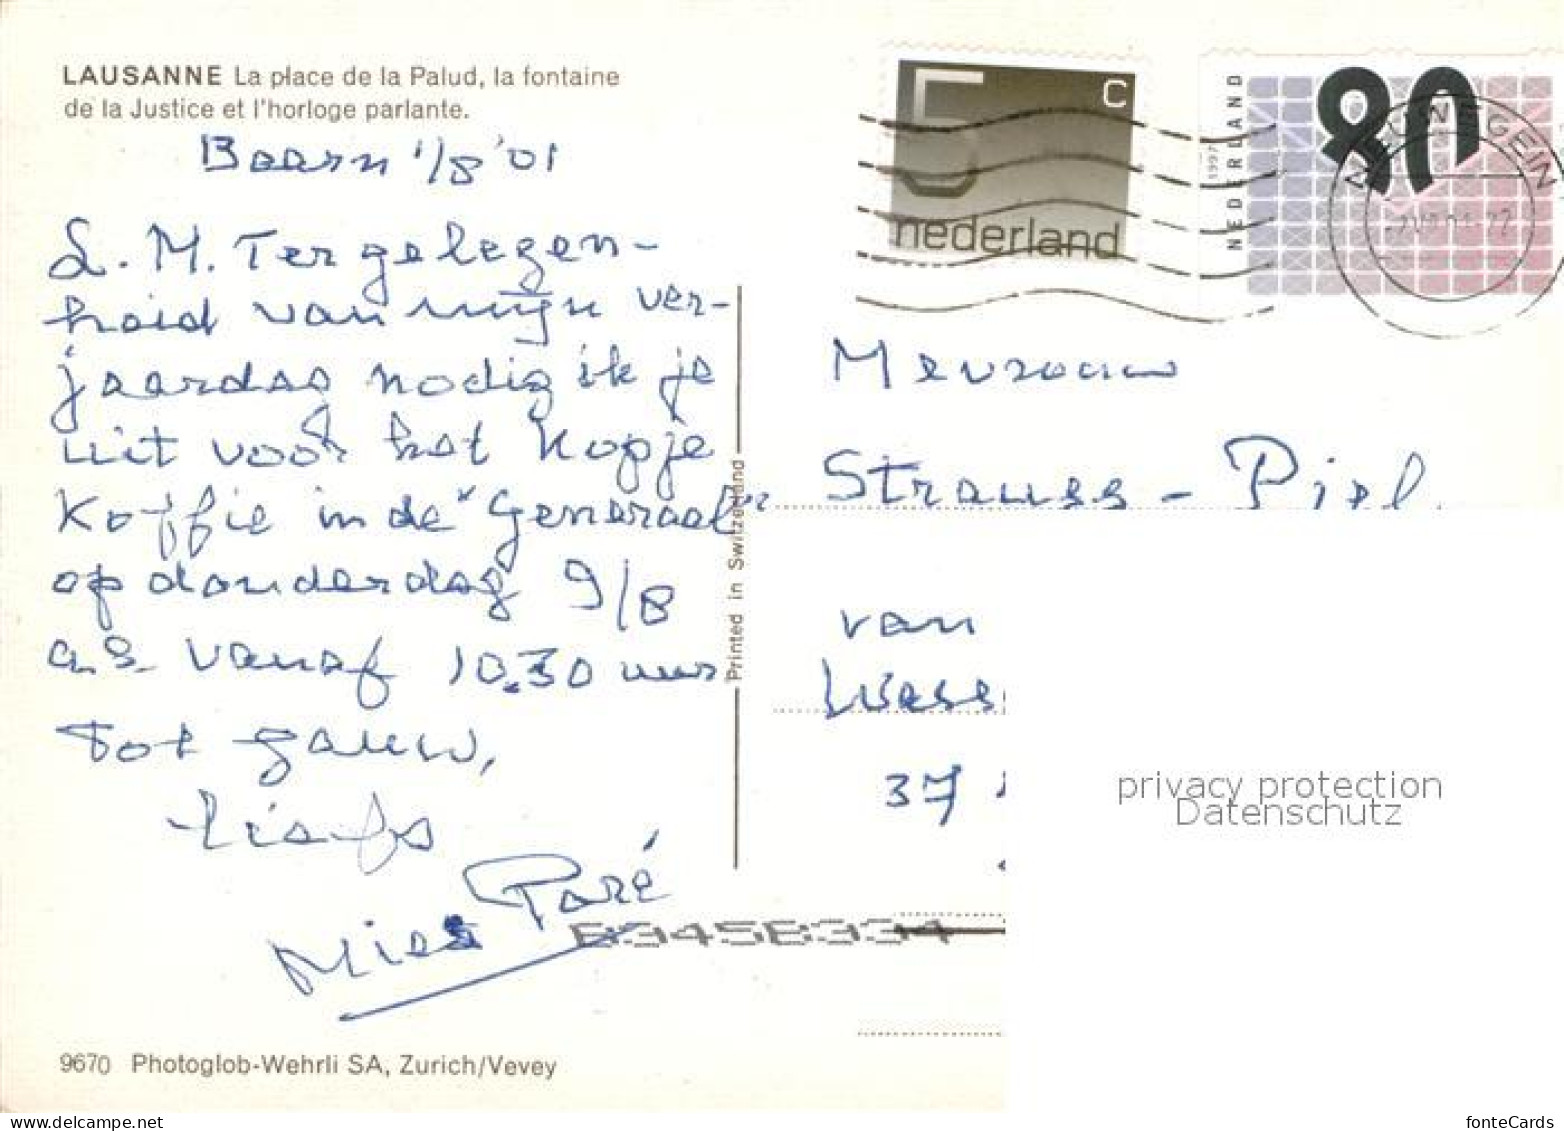 LAUSANNE La place de la Palud, la fontaine
de la Justice et l'horloge parlante.
Baarn 1/8 '01
L. M. Ter gelegen-
heid van mijn ver-
jaardag nodig ik je
uit voor het kopje
koffie in de "Generaal"
op donderdag 9/8
a.s. vanaf 10.30 uur
Tot gauw,
liefs
Mies Paré
9670 Photoglob-Wehrli SA, Zurich/Vevey
Printed in Switzerland
5 c
nederland
NEDERLAND
1997
80
NIEUWEGEIN
Mevrouw
Strauss - Piel
van
37
privacy protection
Datenschutz
fonteCards